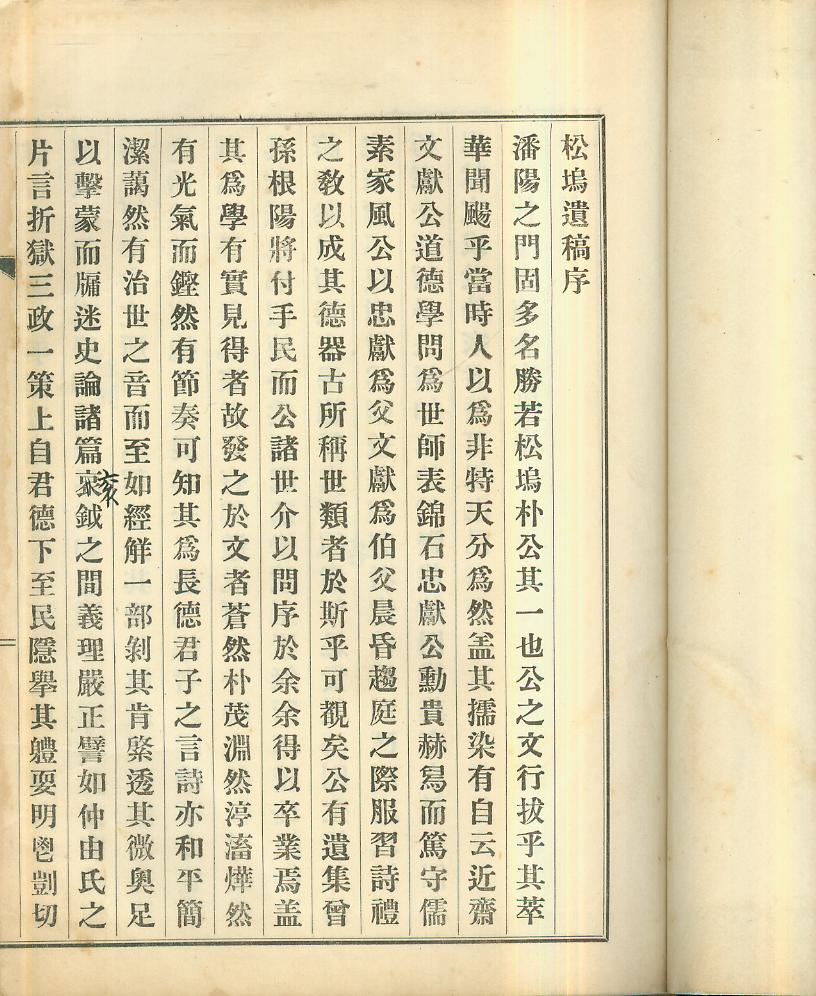 松塢遺稿序
潘陽之門固多名勝若松塢朴公其一也公之文行拔乎其萃
華聞颺乎當時人以爲非特天分爲然盖其擩染有自云近齋
文獻公道德學問爲世師表錦石忠獻公勳貴赫舄而篤守儒
素家風公以忠獻爲父文獻爲伯父晨昏趨庭之際服習詩禮
之敎以成其德器古所稱世類者於斯乎可觀矣公有遺集曾
孫根陽將付手民而公諸世介以問序於余余得以卒業焉盖
其爲學有實見得者故發之於文者蒼然朴茂淵然渟滀燁然
有光氣而鏗然有節奏可知其爲長德君子之言詩亦和平簡
潔藹然有治世之音而至如經解一部剝其肯綮透其微奧足
以擊蒙而牖迷史論諸篇袞鉞之間義理嚴正譬如仲由氏之
片言折獄三政一策上自君德下至民隱擧其軆要明鬯剴切